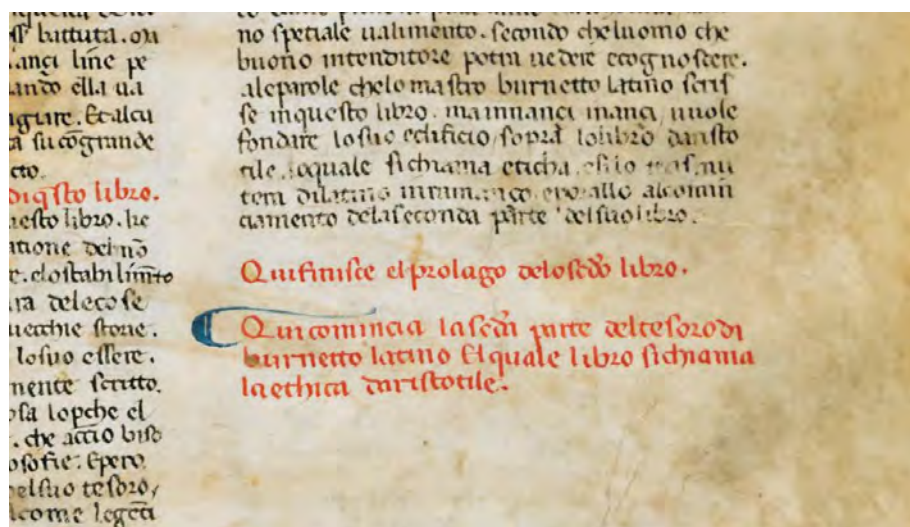 battuta. on
anci line pe
ando ella ua
agure. Et alcu
a su cōgrande
cto.
diqsto libro.
uesto libro. he
atione dei nō
e. elo stabilimīto
ra dele cose
uecchie storie.
lo suo essere.
mente scritto.
osa lopche el
. che accio biso
osofie. Epero.
elsuo tesoro,
come legeti
no spetiale ualimento. secondo cheluomo che
buono intenditore potra uedere ecognoscere.
aleparole chelo mastro burnetto latino scris
se inquesto libro. ma innanci inanci, uuole
fondare lo suo edificio sopra lolibro daristo
tile. loquale si chiama eticha.
tera dilatino in alcomin
ciamento dela seconda parte del suo libro.
Qui finisce el prolago delo scdō libro.
Qui comincia la scdā parte del tesoro di
burnetto latino El quale libro si chiama
la ethica daristotile.